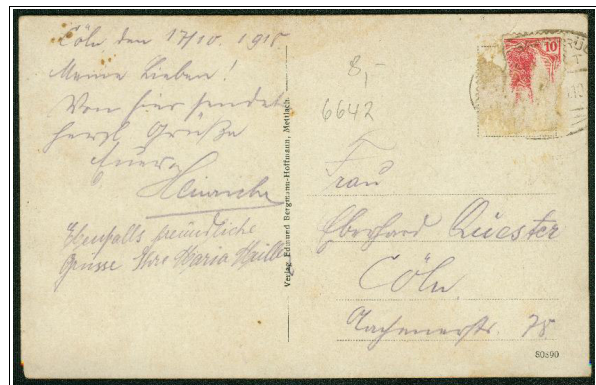 Cöln den 17/10. 1915
Meine Lieben!
Von hier sendet
herzl Grüße
Euer
Ebenfalls freundliche
Grüsse Ihre Maria
Verlag Edmund Bergmann-Hoffmann, Mettlach.
8,-
6642
10
Frau
Eberhard Quester
Cöln
Aachenerstr. 78
80890